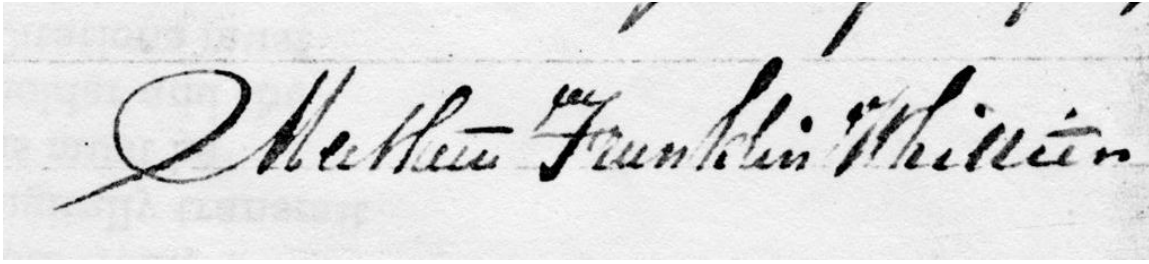 Mathew Franklin Whittier